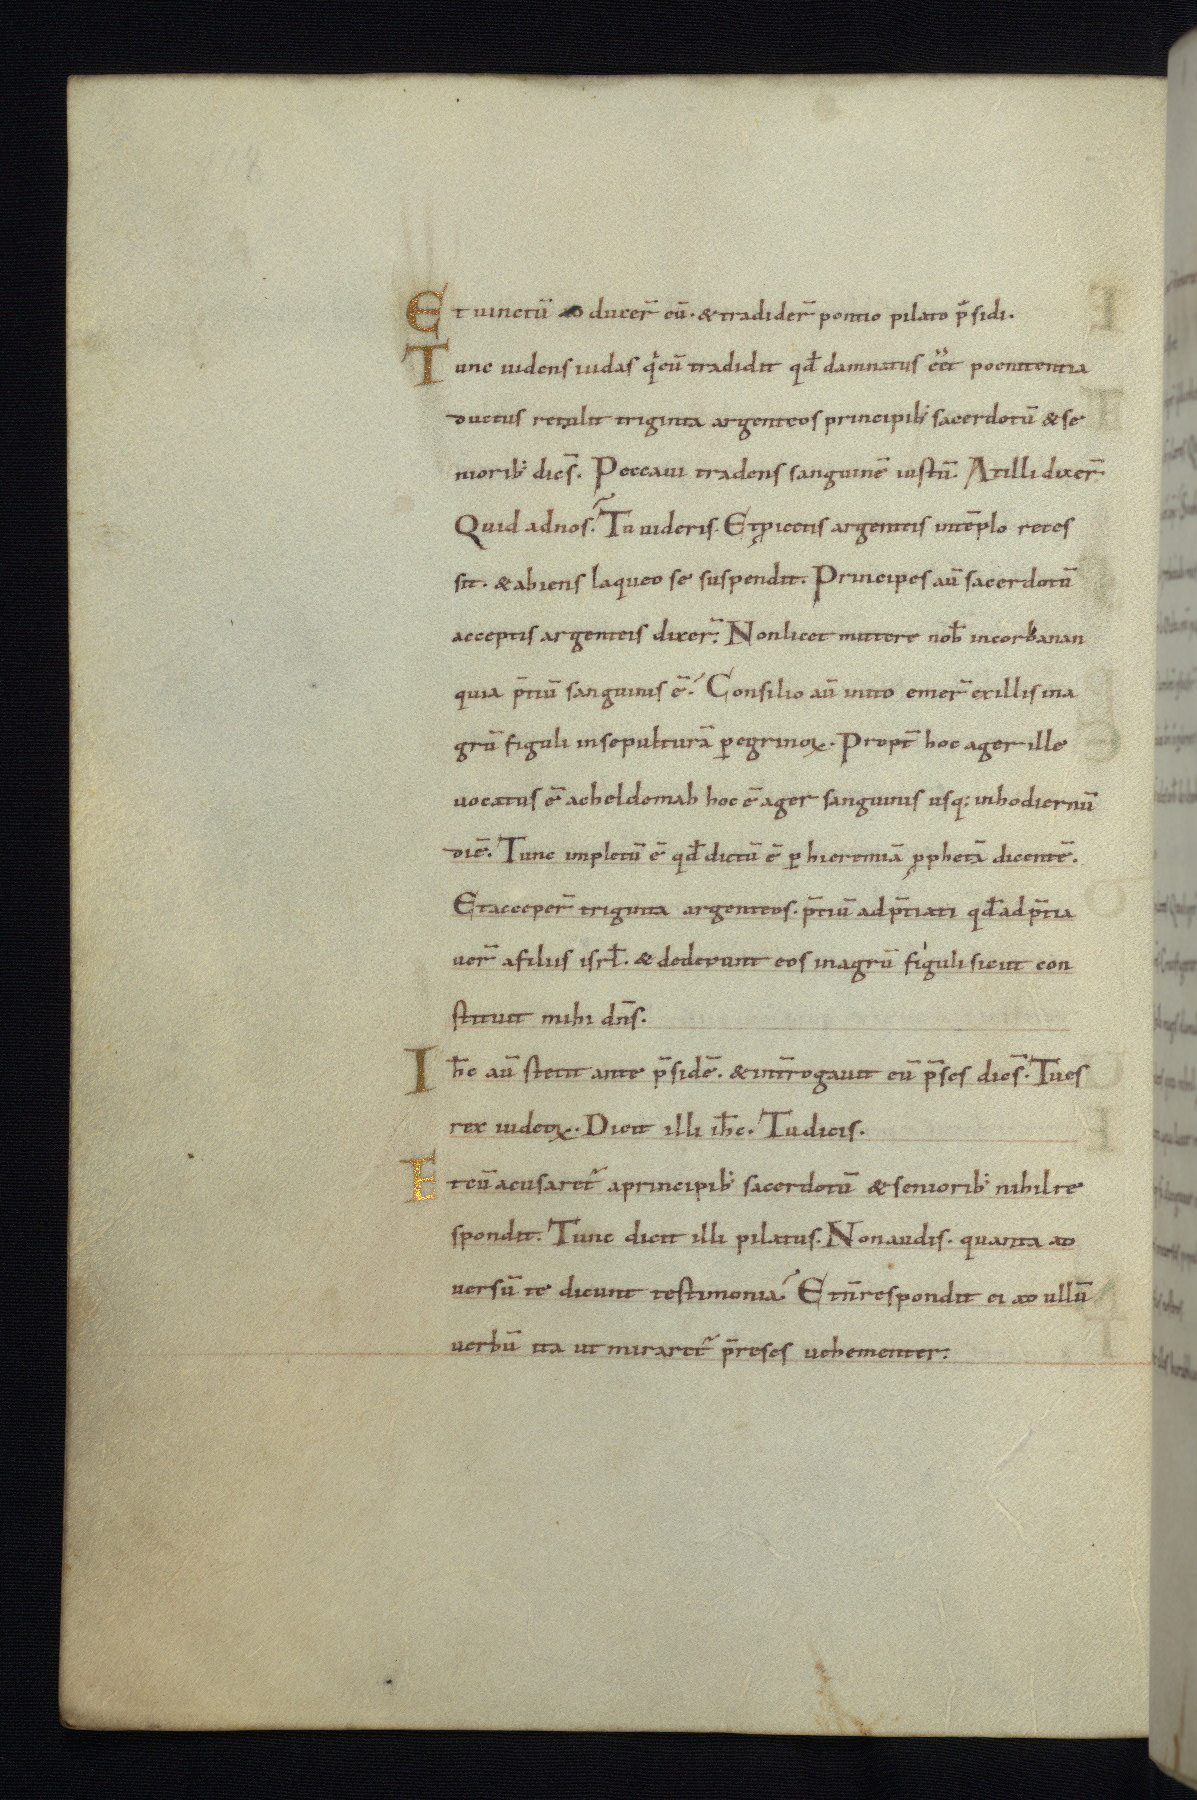 Et uinctū adducer̄ eū. & tradider̄ pontio pilato p̄sidi.
Tunc uidens iudas qͥ eū tradidit qđ damnatus eēt poenitentia
ductus retulit triginta argenteos principib; sacerdotū & se
niorib; dicēs. Peccaui tradens sanguinē iustū. At illi dixer̄.
Quid ad nos? Tu uideris. Et ꝓiectis argenteis in tēplo reces
sit. & abiens laqueo se suspendit. Principes aū sacerdotū
acceptis argenteis dixer̄. Non licet mittere nob̄ in corbanan
quia p̄tiū sanguinis ē. Consilio aū inito emer̄ ex illis in a
grū figuli in sepulturā peregrinoꝝ. Propt̄ hoc ager ille
uocatus ē acheldemah hoc ē ager sanguinis usq; in hodiernū
diē. Tunc impletū ē qđ dictū ē per hieremiā ꝓphetā dicentē.
Et acceper̄ triginta argenteos. p̄tiū adp̄tiati qđ adp̄tia
uer̄ a filiis isrł. & dederunt eos in agrū figuli sicut con
stituit mihi dn̄s.
Ih̄c aū stetit ante p̄sidē. & int̄rogauit eū p̄ses dicēs. Tu es
rex iudeoꝝ. Dicit illi ih̄c. Tu dicis.
Et cū acusaret̄ a principib; sacerdotū & seniorib; nihil re
spondit. Tunc dicit illi pilatus. Non audis. quanta ad
uersū te dicunt testimonia? Et n̄ respondit ei ad ullū
uerbū ita ut miraret̄ p̄reses uehementer.